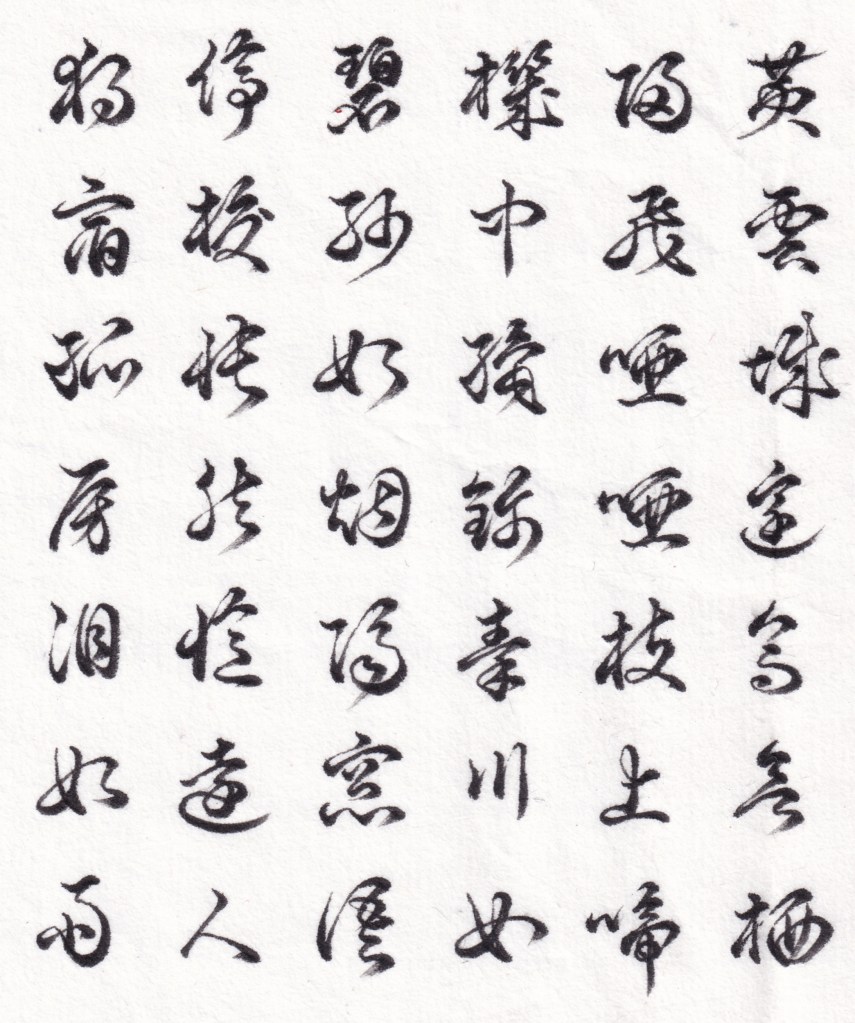 黄雲城邊烏欲栖
歸飛啞啞枝上啼
機中織錦秦川女
碧紗如烟隔窓語
停梭悵然憶遠人
獨宿孤房泪如雨